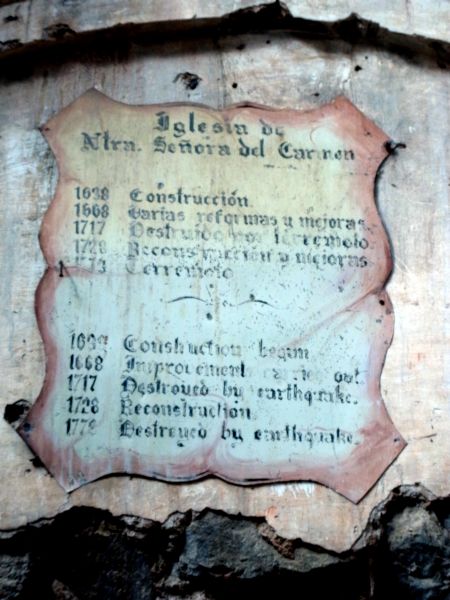 Iglesia de
Ntra. Señora del Carmen
1638 Construcción.
1668 Varias reformas y mejoras.
1717 Destruido por terremoto.
1728 Reconstrucción y mejoras
1773 Terremoto
Construction begun
1668 Improvement carried out.
1717 Destroyed by earthquake.
1728 Reconstruction.
1773 Destroyed by earthquake.